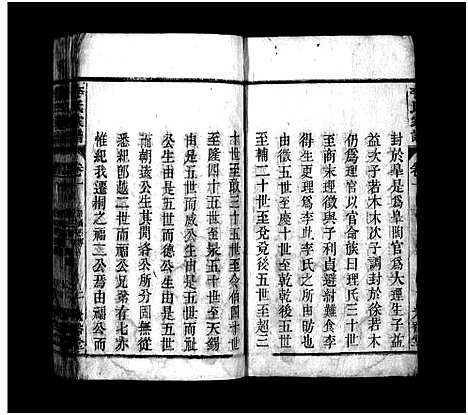 封於皋是爲皋陶官爲大理生子益
益次子若木木次子調封於徐若木
仍爲理官以官命族曰理氏三十世
至商末理徵與子利貞避紂難食李
得生更理爲李此李氏之所由昉也
由徵五世至慶十世至乾乾後五世
至輔二十世至兌兌後五世至超三
十世至敢三十五世至令伯四十世
至隆四十五世至泉五十世至天錫
公生由是五世而威公生由是五世而祉
公生由是五世而德公生由是五世
而朝議公生其閒各公所分固無從
悉紀卽越二世而福公兄肅有七亦
惟紀我遷桐之福三公焉由福公而
李氏宗譜
卷一